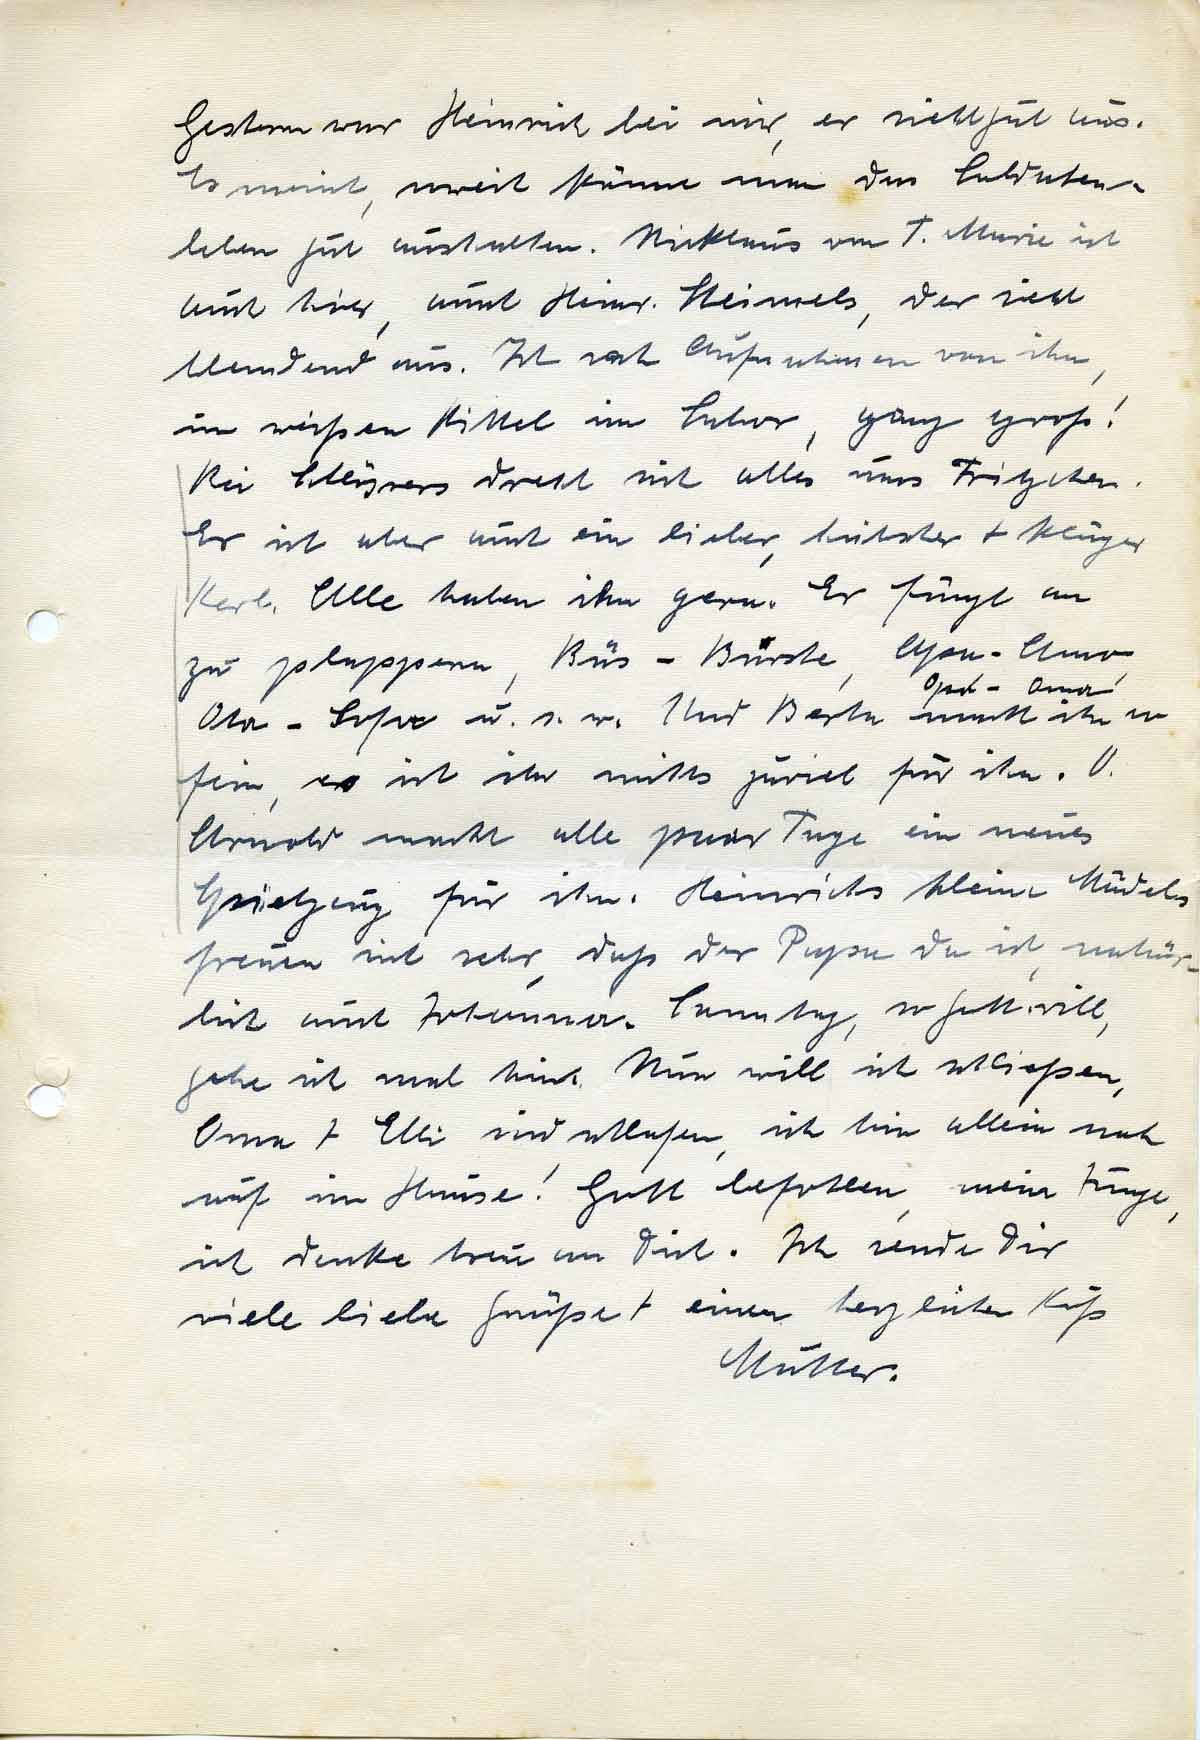 Gestern war Heinrich bei mir, er sieht gut aus.
Es meint, soweit könne man das Soldaten-
leben gut aushalten. Nicklaus von T. Marie ist
auch hier, auch Heinr. Steimels, der sieht
blendend aus. Ich sah Aufnahmen von ihm,
im weißen Kittel im Labor, ganz groß!
Bei dreht sich alles ums Fritzchen.
Er ist aber auch ein lieber, hübscher + kluger
Kerl. Alle haben ihn gern. Er fängt an
zu plappern, Büs - Bürste, Apa - Ama
Opa - Oma
Ota - Sofa u. s. w. Und Berta macht ihn so
fein, es ist ihr nichts zuviel für ihn. O.
Arnold macht alle paar Tage ein neues
Spielzeug für ihn. Heinrichs kleine Mädels
freuen sich sehr, daß der Papa da ist, natür-
lich auch Johanna. Sonntag, so Gott will,
gehe ich mal hin. Nun will ich schließen,
Oma + Elli sind schlafen, ich bin allein noch
auf im Hause! Gott befohlen, mein Junge,
ich denke treu an Dich. Ich sende Dir
viele liebe Grüße + einen herzlichen Kuß
Mutter.